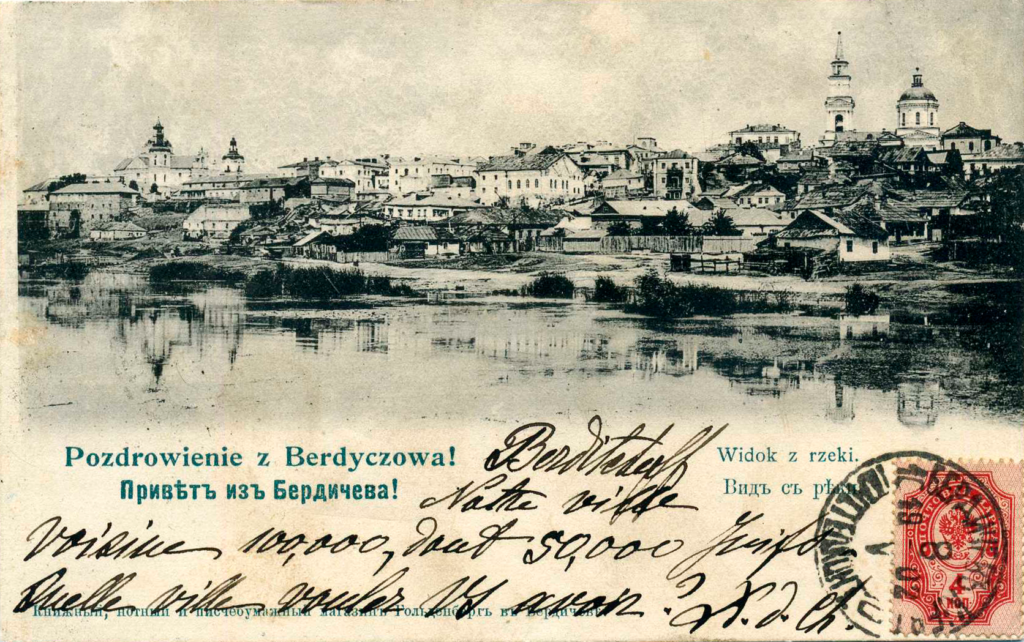 Pozdrowienie z Berdyczowa!
Привѣтъ изъ Бердичева!
Widok z rzeki.
Видъ съ рѣки.
Berditscheff
Notre ville
voisine 100,000, dont 50,000 Juifs
Quelle ville voulez
avoir?
Книжный, нотный и писчебумажный магазинъ Гольденбергъ въ Бердичевѣ.
4
КОП